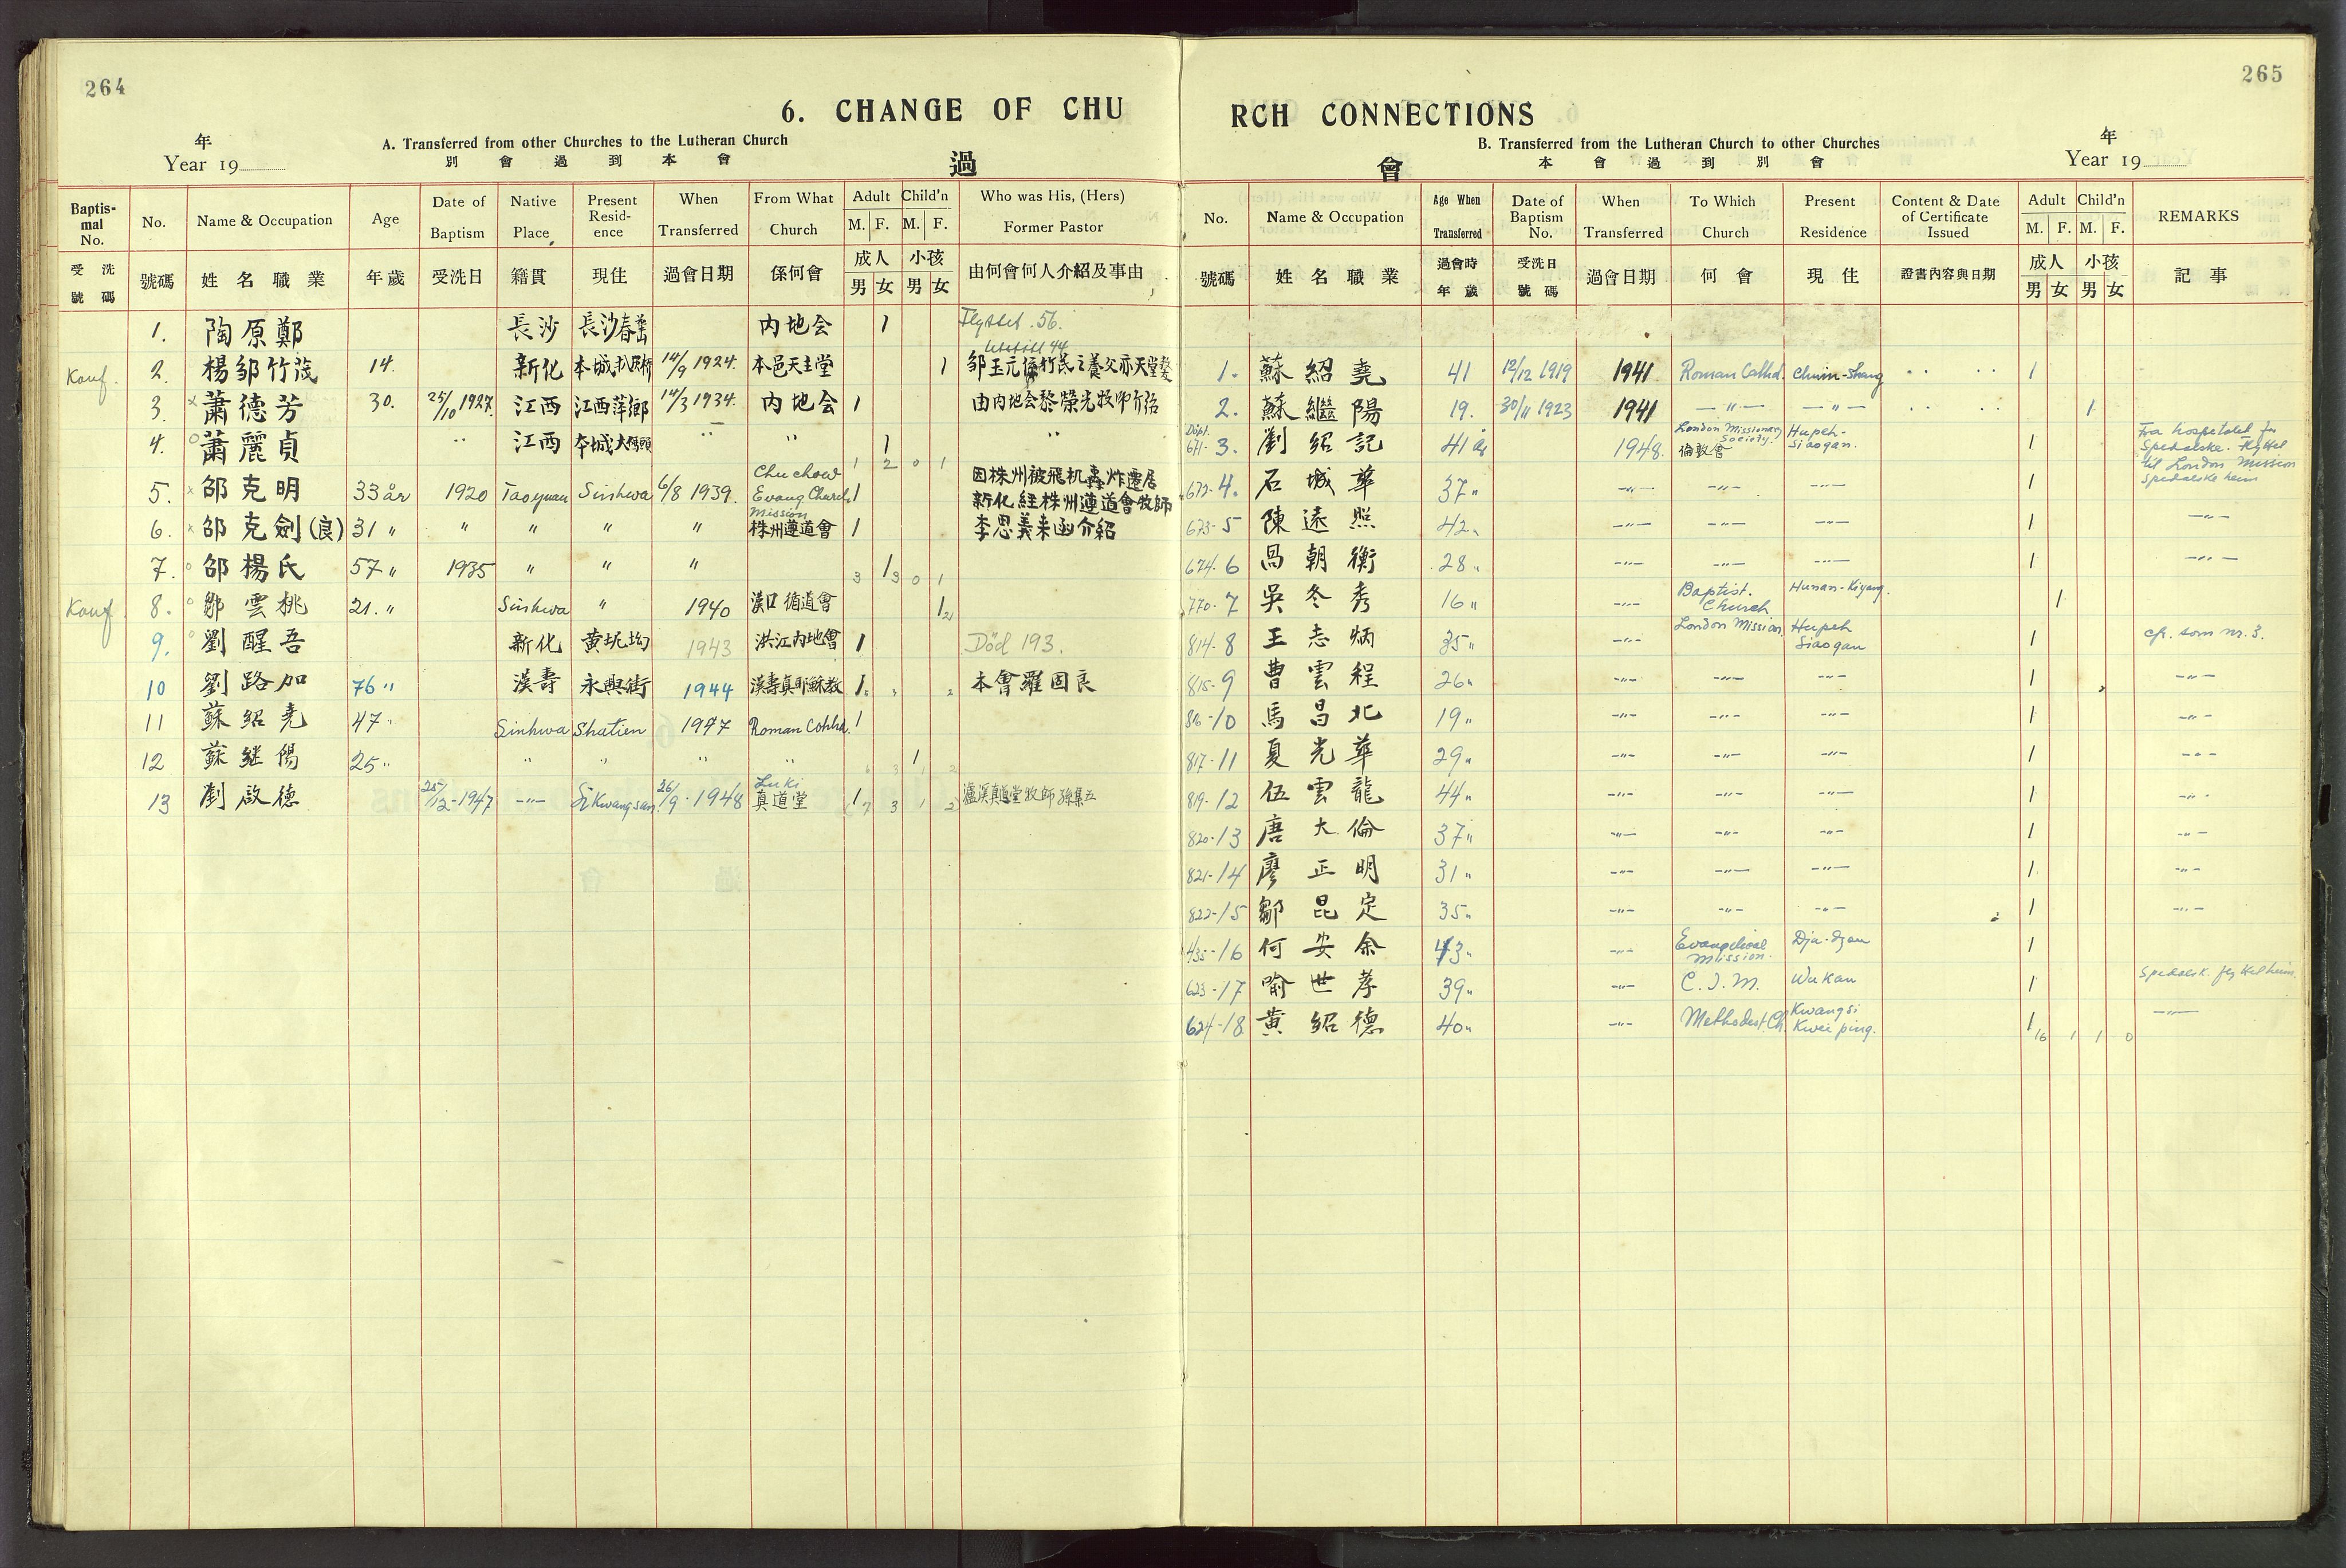 264
265
6. CHANGE OF CHU
RCH CONNECTIONS
年
Year 19
A. Transferred from other Churches to the Lutheran Church
別會過到本會
過
會
B. Transferred from the Lutheran Church to other Churches
本會過到別會
年
Year 19
Baptismal No. No. Name & Occupation Age Date of Baptism Native Place Present Residence When Transferred From What Church Adult M. F. Child'n M. F. Who was His, (Hers) Former Pastor
受洗號碼 號碼 姓名職業 年歲 受洗日 籍貫 現住 過會日期 係何會 成人 男 女 小孩 男 女 由何會何人介紹及事由
1. 陶原鄭 長沙 內地会 1 Flyttet. 56.
Konf. 2. 楊邹竹茂 14. 新化 14/9 1924. 本邑天主堂 1
3. x 蕭德芳 30. 25/10 1927. 江西 江西萍鄉 14/3 1934. 內地会 1 由內地会黎榮光牧师介绍
4. o 蕭麗貞 " 江西 本城大碼頭 " " 1 "
1 2 0 1
5. x 邵克明 33 år 1920 Taoyuan Sinhwa 6/8 1939. Chuchow Evang Church Mission 1 因株州被飛机轟炸遷居
新化経株州遵道會牧師
6. x 邵克劍(良) 31 " " " " " 株州遵道會 1 李思義来函介紹
7. o 邵楊氏 57 " 1935 " " " 1
3 3 0 1
Konf. 8. o 鄒雲桃 21. " Sinhwa " 1940 漢口循道會 1 2
9. o 劉醒吾 新化 黄坭坳 1943 洪江內地會 1 Död 193.
10 劉路加 76 " 漢壽 永興街 1944 漢壽真耶穌教 1 本會羅固良
11 蘇紹堯 47 " Sinhwa Shatien 1947 Roman Cathd. 1
12 蘇继陽 25 " " " " " 1
13 劉啟德 25/12-1947 -"- Sikwangsan 26/9-1948 Luki 真道堂 1 7 3 1 2 瀘溪真道堂牧師孫集五
No. Name & Occupation Age When Transferred Date of Baptism No. When Transferred To Which Church Present Residence Content & Date of Certificate Issued Adult M. F. Child'n M. F. REMARKS
號碼 姓名職業 過會時年歲 受洗日號碼 過會日期 何會 現住 證書內容與日期 成人 男 女 小孩 男 女 記事
1. 蘇紹堯 41 12/12 1919 1941 Roman Cathd. Chuin-Shang " " 1
2. 蘇繼陽 19. 30/11 1923 1941 -"- -"- " " 1
Döpt. 671- 3. 劉紹記 41 år 1948. London Missionary Society. 倫敦會 Hupeh-Siaogan. 1 Fra hospitalet for Spedalske. Flyttet til London Mission Spedalske heim
672- 4. 石城華 37 " -"- -"- -"- 1
673- 5 陳遠照 42 " -"- -"- -"- 1 -"-
674- 6 咼朝衡 28 " -"- -"- -"- 1 -"-
770- 7 吳冬秀 16 " -"- Baptist. Church Hunan-Kiyang. 1
814- 8 王志炳 35 " -"- London Mission Hupeh Siaogan 1 cfr. som nr. 3.
815- 9 曹雲程 26 " -"- -"- -"- 1 -"-
816- 10 馬昌北 19 " -"- -"- -"- 1 -"-
817- 11 夏光華 29 " -"- -"- -"- 1 -"-
819- 12 伍雲龍 44 " -"- -"- -"- 1 -"-
820- 13 唐大倫 37 " -"- -"- -"- 1 -"-
821- 14 廖正明 31 " -"- -"- -"- 1 -"-
822- 15 鄒昆定 35 " -"- -"- -"- 1 -"-
435- 16 何安余 43 " -"- Evangelical Mission. 1
623- 17 喻世孝 39 " -"- C. I. M. Wukan 1
624- 18 黄紹德 40 " -"- Methodist. Ch. Kwangsi Kwei ping. 1 -"-
16 1 1 0